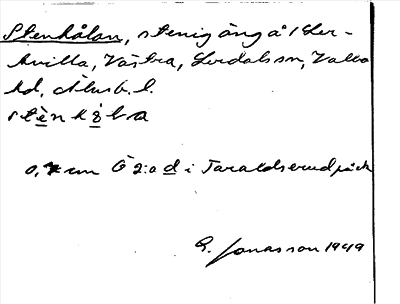 Stenkålan, stenig äng å 1 Ler-
kvilla, Västra, Lerdals sn, Valbo
hd, Älvsb. l.
stènkå̀la
0,7 cm Ö 2:a d i Taraldserud på ek
G. Jonasson 1949